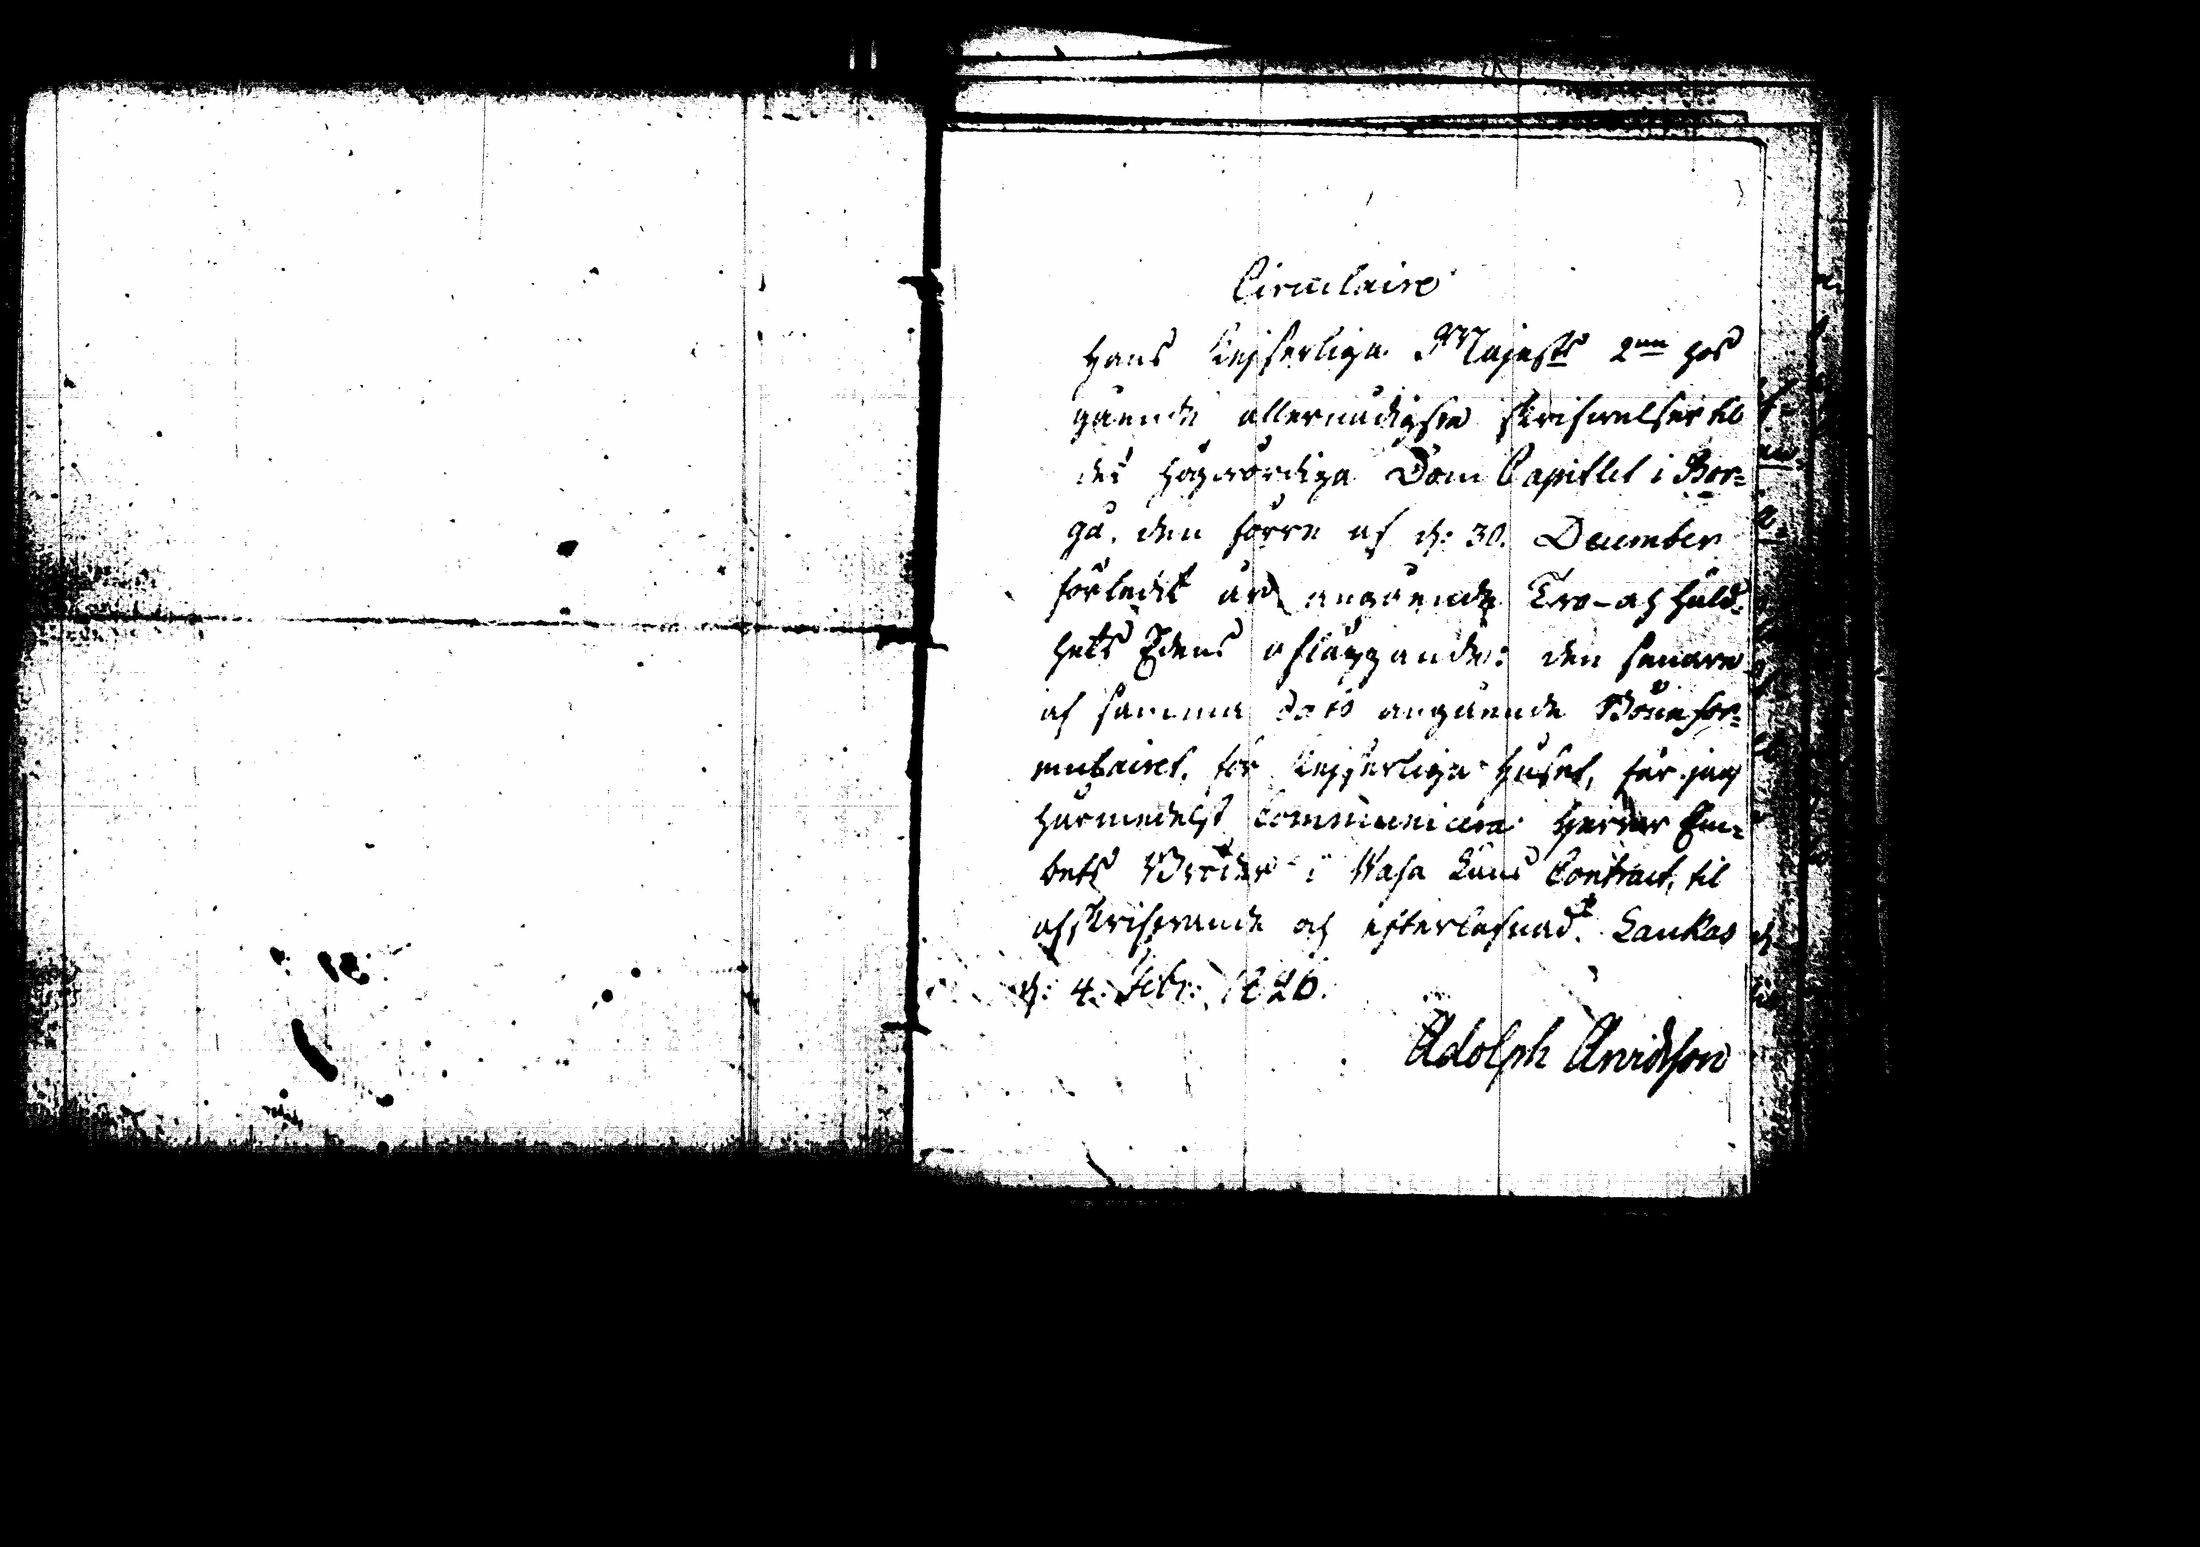 Circulaire
Hans Kejserliga Majests 2ne hos
gående allernådigste skrifwelser til
det Högwördiga Dom Capitlet i Bor=
gå, den förre af d: 30. December
förledit år, angående Tro- och Huld=
hets Edens afläggande: den senare
af samma dato angående Böneför=
mulairet, för Kejserliga Huset, får jag
härmedelst Communicera Herrar Em=
bets Bröder i Wasa Läns Contract, til
afskrifwande och efterlefnad. Laukas
d: 4. Febr: 1826.
Adolph Arvidsson